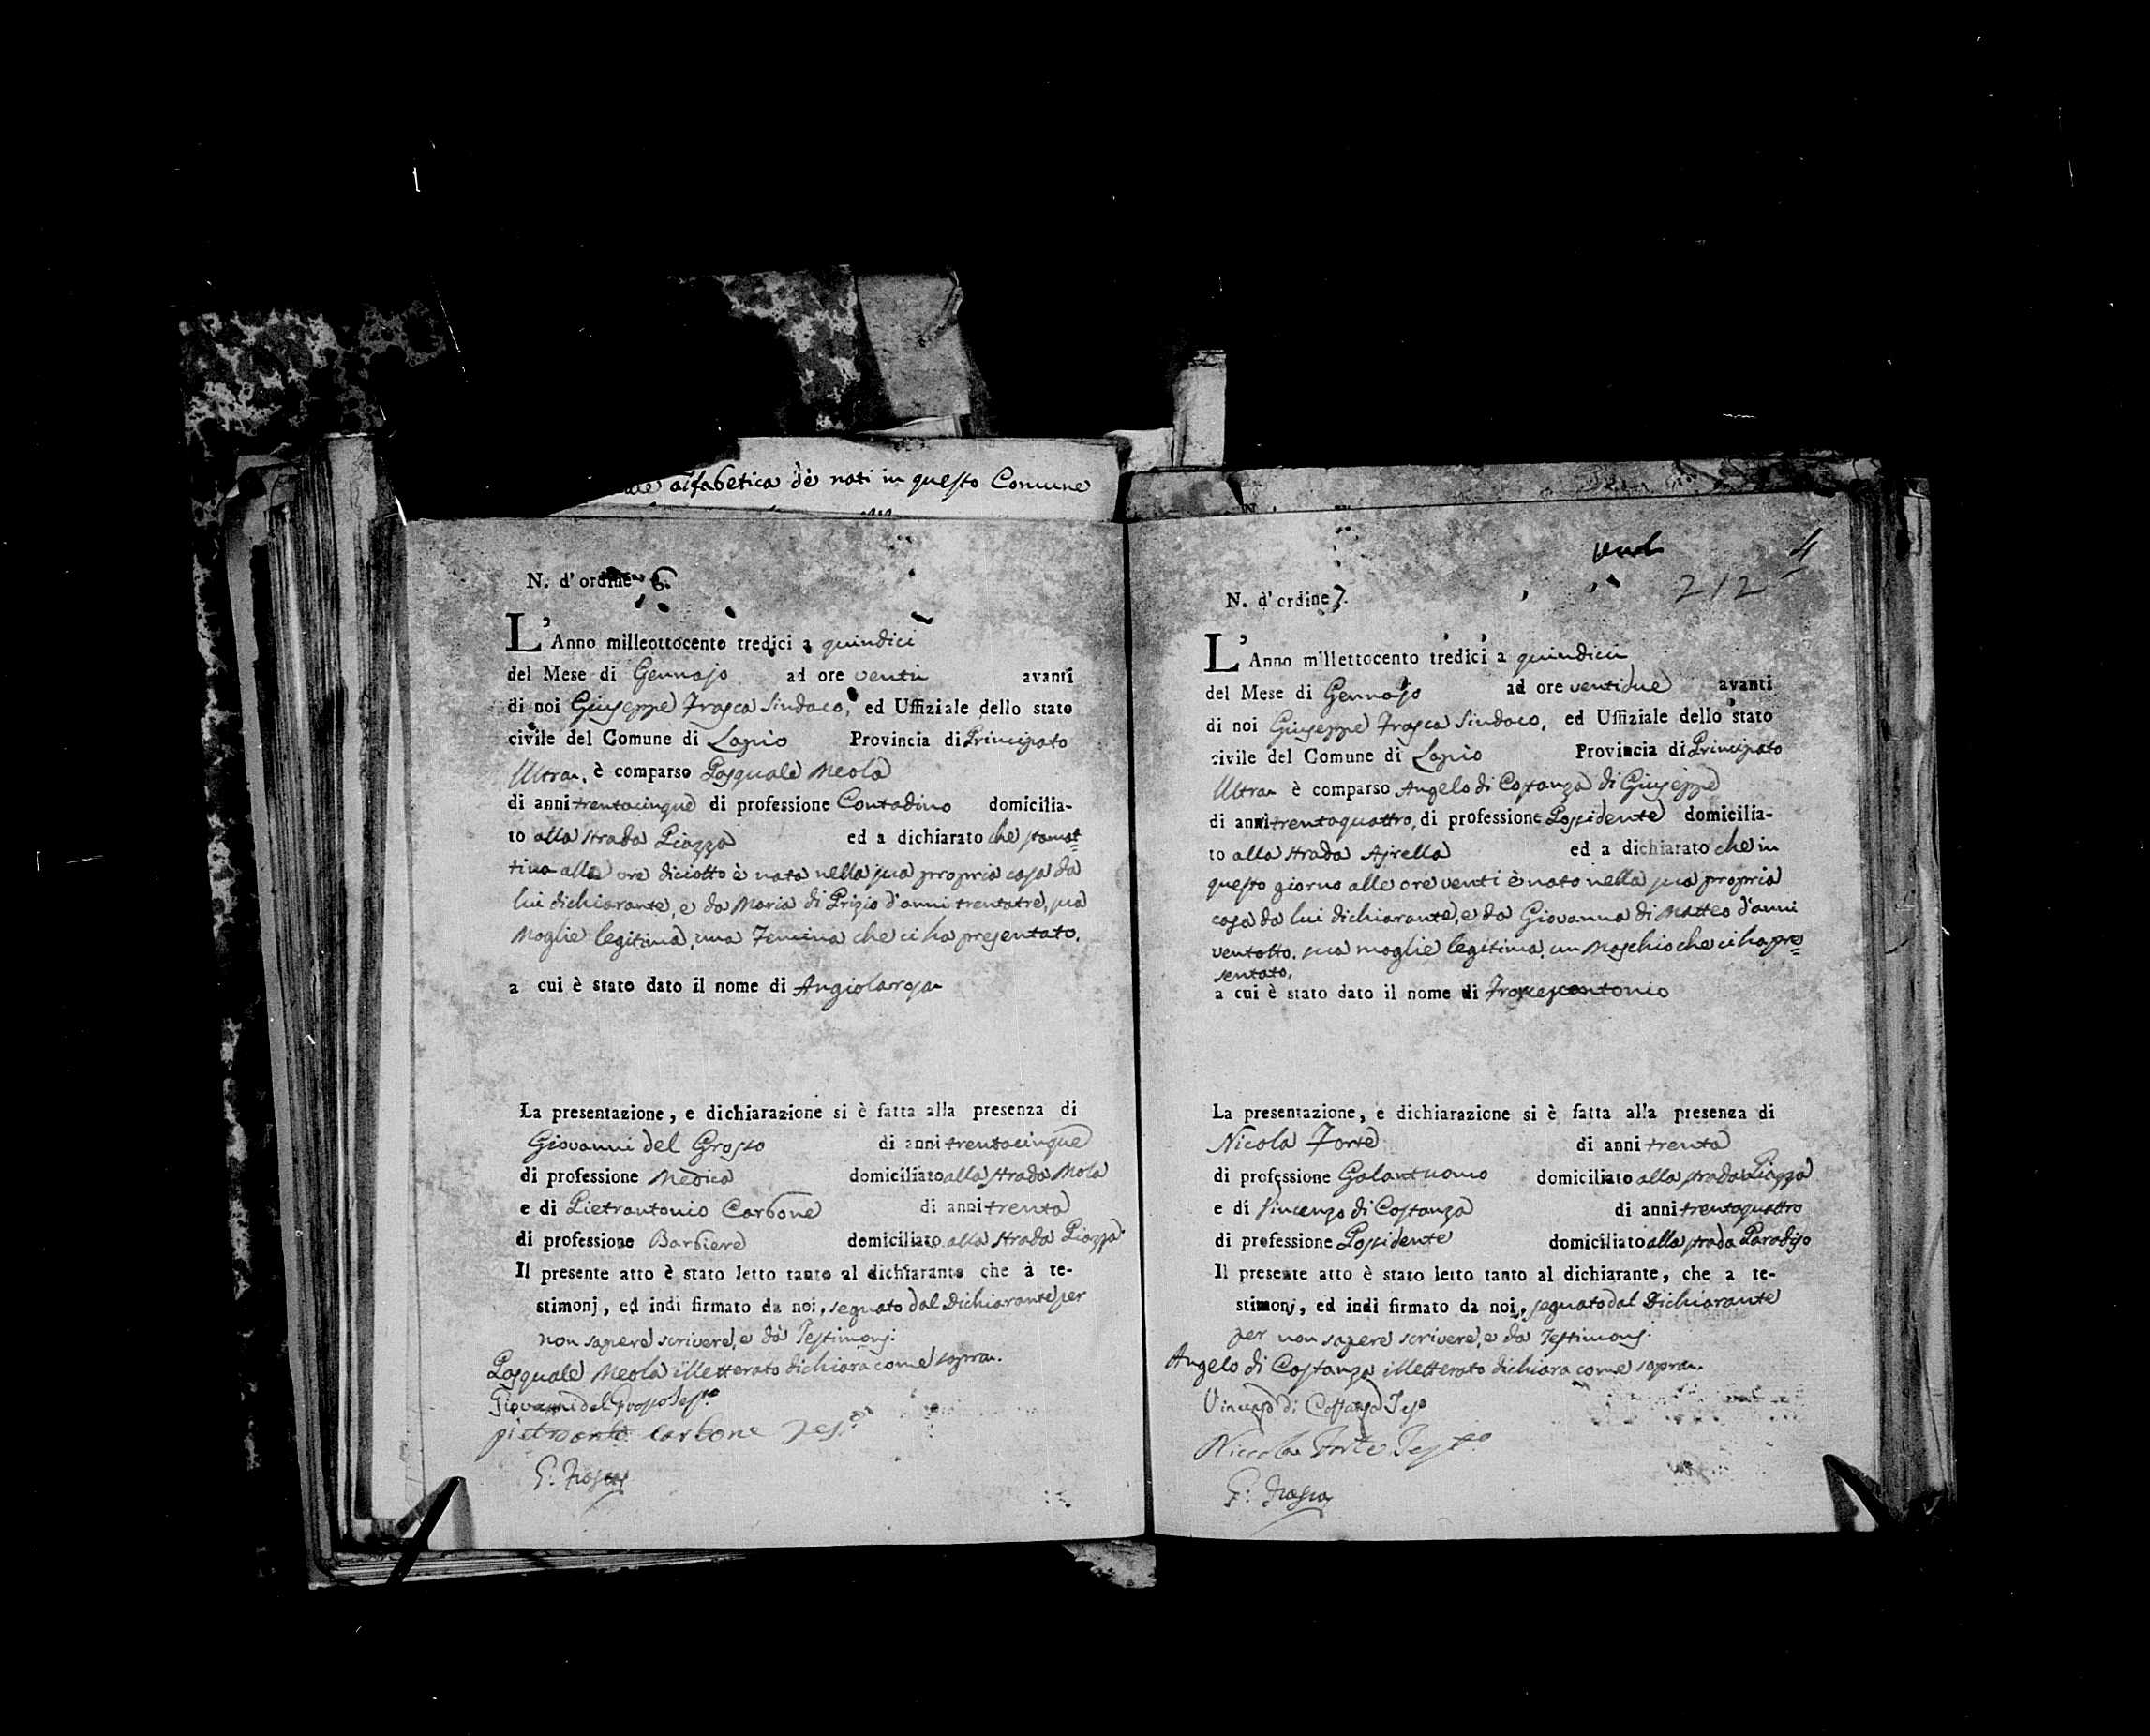 alfabetica de nati in questo Comune
N. d'ordine 6.
L'Anno milleottocento tredici a quindici
del Mese di Gennajo ad ore venti avanti
di noi Giuseppe Frasca Sindaco, ed Uffiziale dello stato
civile del Comune di Lapio Provincia di Principato
Ultra, è comparso Pasquale Meola
di anni trentacinque di professione Contadino domicilia-
to alla strada Piazza ed a dichiarato che stamat=
tina alle ore diciotto è nata nella sua propria casa da
lui dichiarante, e da Maria di Prizio d'anni trentatre, sua
Moglie legitima, una Femina che ci ha presentato,
a cui è stato dato il nome di Angiolarosa
La presentazione, e dichiarazione si è fatta alla presenza di
Giovanni del Grosso di anni trentacinque
di professione Medico domiciliato alla strada Mola
e di Pietrantonio Carbone di anni trenta
di professione Barbiere domiciliato alla strada Piazza
Il presente atto è stato letto tanto al dichiarante che a te-
stimonj, ed indi firmato da noi, segnato dal Dichiarante per
non sapere scrivere, e da Testimonj.
Pasquale Meola illetterato dichiara come sopra.
Giovanni del Grosso Testo
pietroanto carbone Tes.o
G. Frasca
vend
4
212
N. d'ordine 7.
L'Anno millettocento tredici a quindici
del Mese di Gennajo ad ore ventidue avanti
di noi Giuseppe Frasca Sindaco, ed Uffiziale dello stato
civile del Comune di Lapio Provincia di Principato
Ultra è comparso Angelo di Costanza di Giuseppe
di anni trentaquattro, di professione Possidente domicilia-
to alla strada Ajrella ed a dichiarato che in
questo giorno alle ore venti è nato nella sua propria
casa da lui dichiarante, e da Giovanna di Matteo d'anni
ventotto, sua moglie legitima, un Maschio che ci ha pre=
sentato,
a cui è stato dato il nome di Francescantonio
La presentazione, e dichiarazione si è fatta alla presenza di
Nicola Forte di anni trenta
di professione Galantuomo domiciliato alla strada Piazza
e di Vincenzo di Costanza di anni trentaquattro
di professione Possidente domiciliato alla strada Paradiso
Il presente atto è stato letto tanto al dichiarante, che a te-
stimonj, ed indi firmato da noi, segnato dal Dichiarante
per non sapere scrivere, e da Testimonj.
Angelo di Costanza illetterato dichiara come sopra.
Vincenzo di Costanza Teso
Niccola Forte Testo
G: Frasca